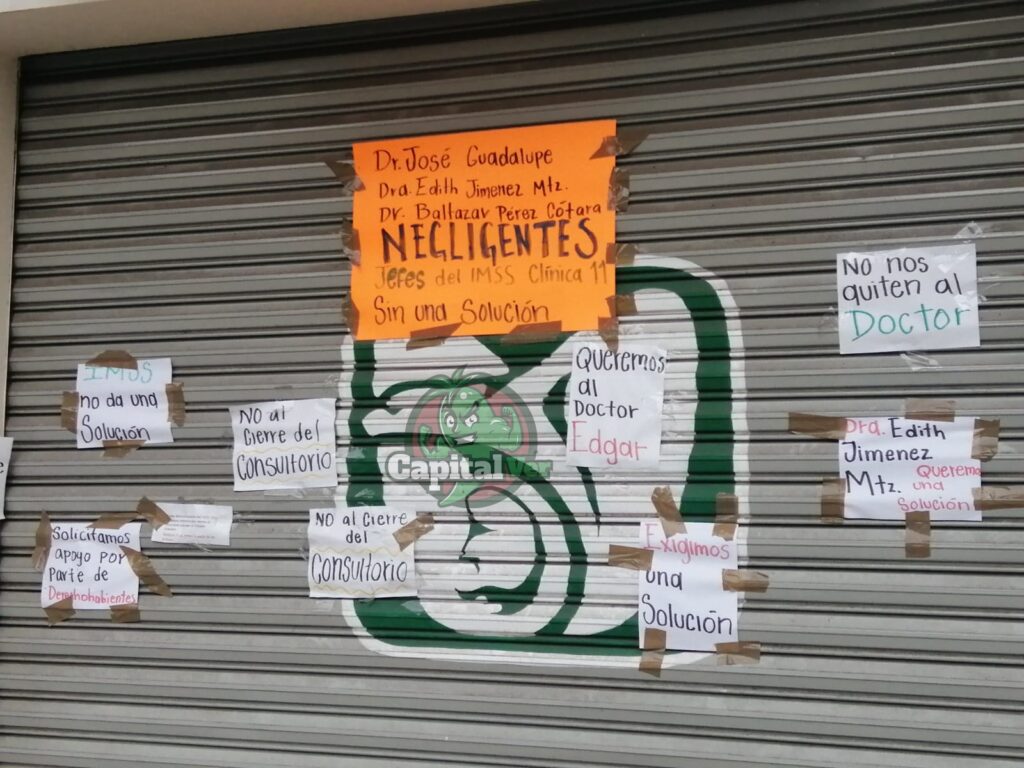 Dr. José Guadalupe
Dra. Edith Jimenez Mtz.
Dr. Baltazar Pérez Cótara
NEGLIGENTES
Jefes del IMSS Clínica 11
Sin una Solución
No nos
quiten al
Doctor
Queremos
al
Doctor
Edgar
IMSS
no da una
Solución
No al
Cierre del
Consultorio
CapitalVer
Dra. Edith
Jimenez
Mtz. Queremos
una
Solución
Solicitamos
apoyo por
parte de
Derechohabientes
No al Cierre
del
Consultorio
Exigimos
una
Solución